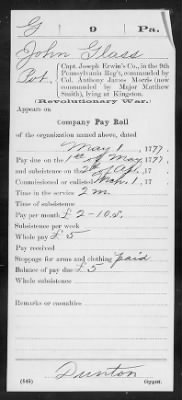 G 9 Pa.
John Glass
Pvt., Capt. Joseph Erwin's Co., in the 9th
Pennsylvania Reg't, commanded by
Col. Anthony James Morris (now
commanded by Major Matthew
Smith), lying at Kingston.
(Revolutionary War.)
Appears on
Company Pay Roll
of the organization named above, dated
May 1, 1777.
Pay due on the 1st of May 1777
and subsistence on the 2d of Apl, 17
Commissioned or enlisted Mar. 1, 17
Time in the service 2 m.
Time of subsistence
Pay per month £ 2-10.s.
Subsistence per week
Whole pay £ 5
Pay received
Stoppage for arms and clothing paid
Balance of pay due £ 5
Whole subsistence
Remarks or casualties
Dunton
(545) Copyist.